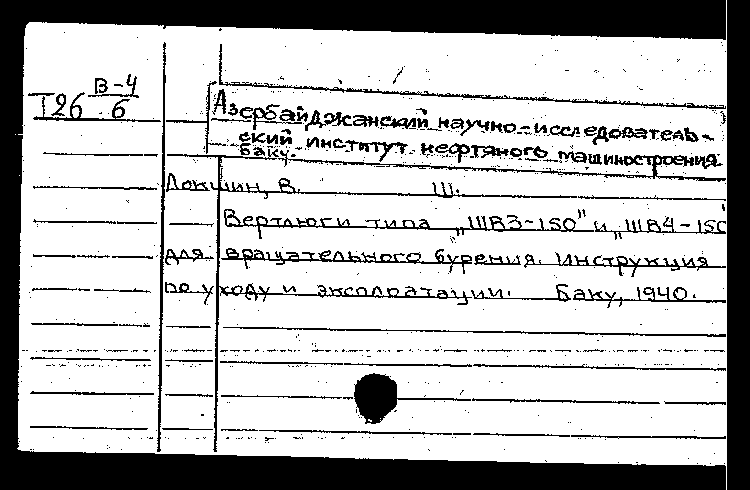 В-4
Т26 6
Азербайджанский научно-исследователь-
ский институт нефтяного машиностроения.
Баку.
Локшин, В. Ш.
Вертлюги типа „ШВЗ-150" и „ШВ4-150
для вращательного бурения. Инструкция
по уходу и эксплоатации. Баку, 1940.